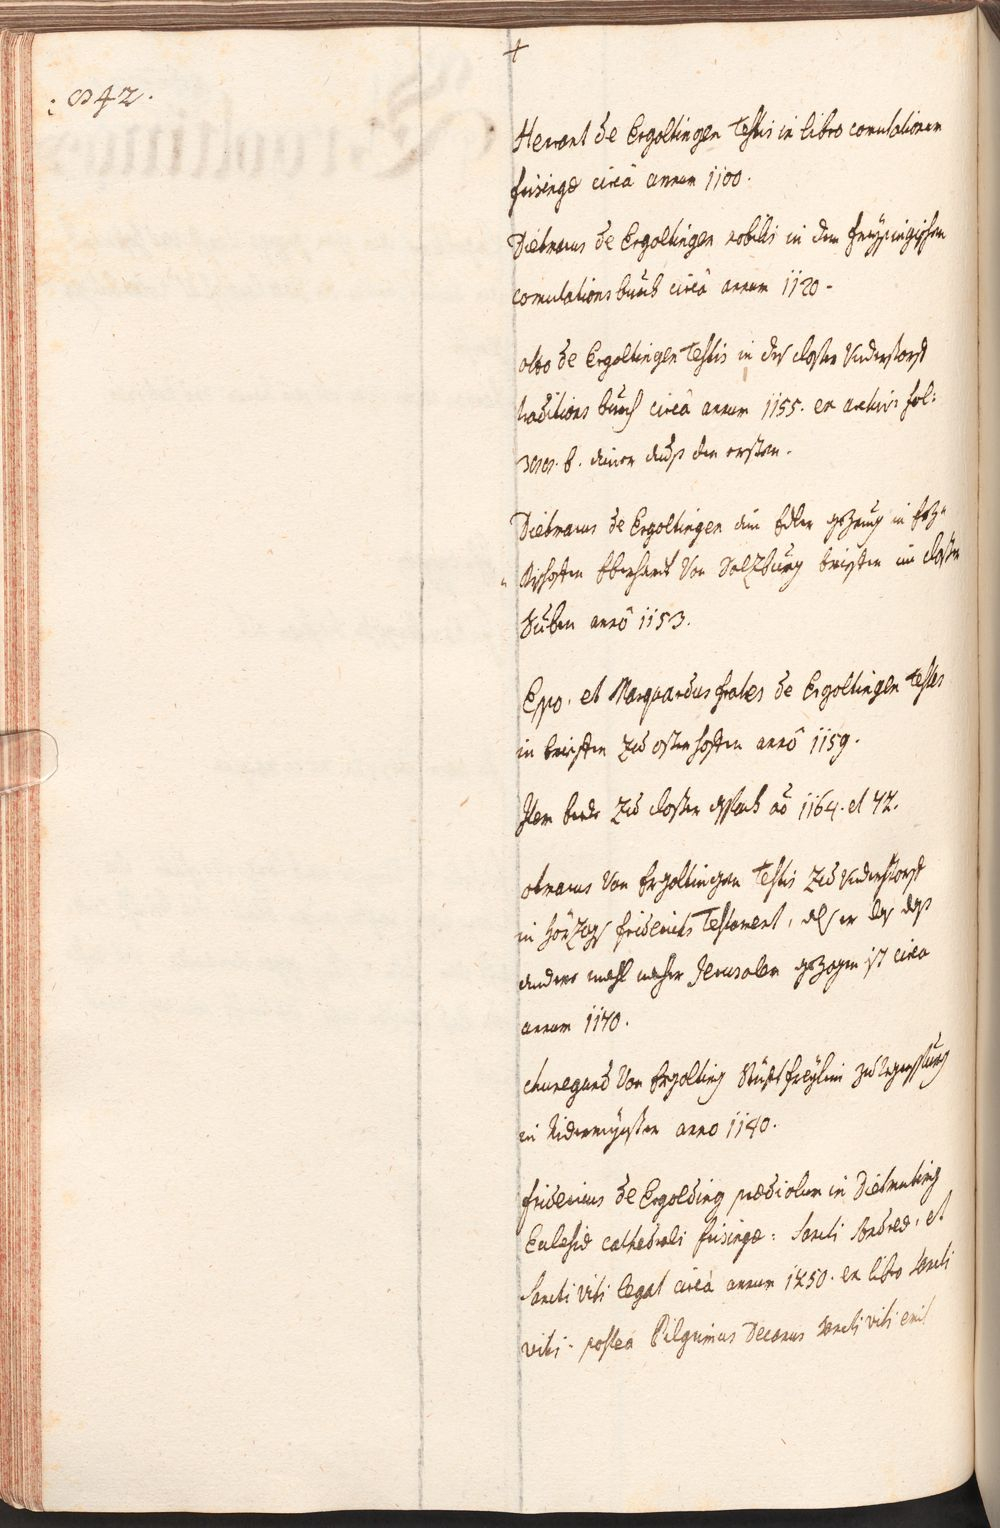 +
: 842 .
Herrant de Ergoltingen testis in libro comutationum
frisingæ circa annum 1100.
Dietmarus de Ergoltingen nobilis in dem freysingischen
comutations buech circa annum 1120.
otto de Ergoltingen testis in des closter Understorff
traditions buech circa annum 1155. ex archivis fol:
b. ainer auß den ersten.
Dietmarus de Ergoltingen ain Edler gezeug in Erz„
„Bischoffen Eberhardt von Salzburg brieffen im closter
Suben anno 1153.
Eppo. et Marquardus fratres de Ergoltingen testes
in brieffen zu osterhoffen anno 1159.
Item beede zu closter aspach ao 1164. et 72.
otmarus von Ergoltingen testis zu Understorff
in Herzogs friderichs Testament, als er das
andere mahl nacher Jerusalem gezogen ist circa
annum 1170.
chunegund von Ergolting Stüfftfreylein zu regenspurg
in Nidermünster anno 1140.
fridericus de Ergolding prædiolum in Dietmating
Eclesiæ cathedrali frisingæ: Sancti Andreæ, et
Sancti viti legat circa annum 1250. ex libro sancti
viti. postea Pilgrimus Decanus sancti viti emit